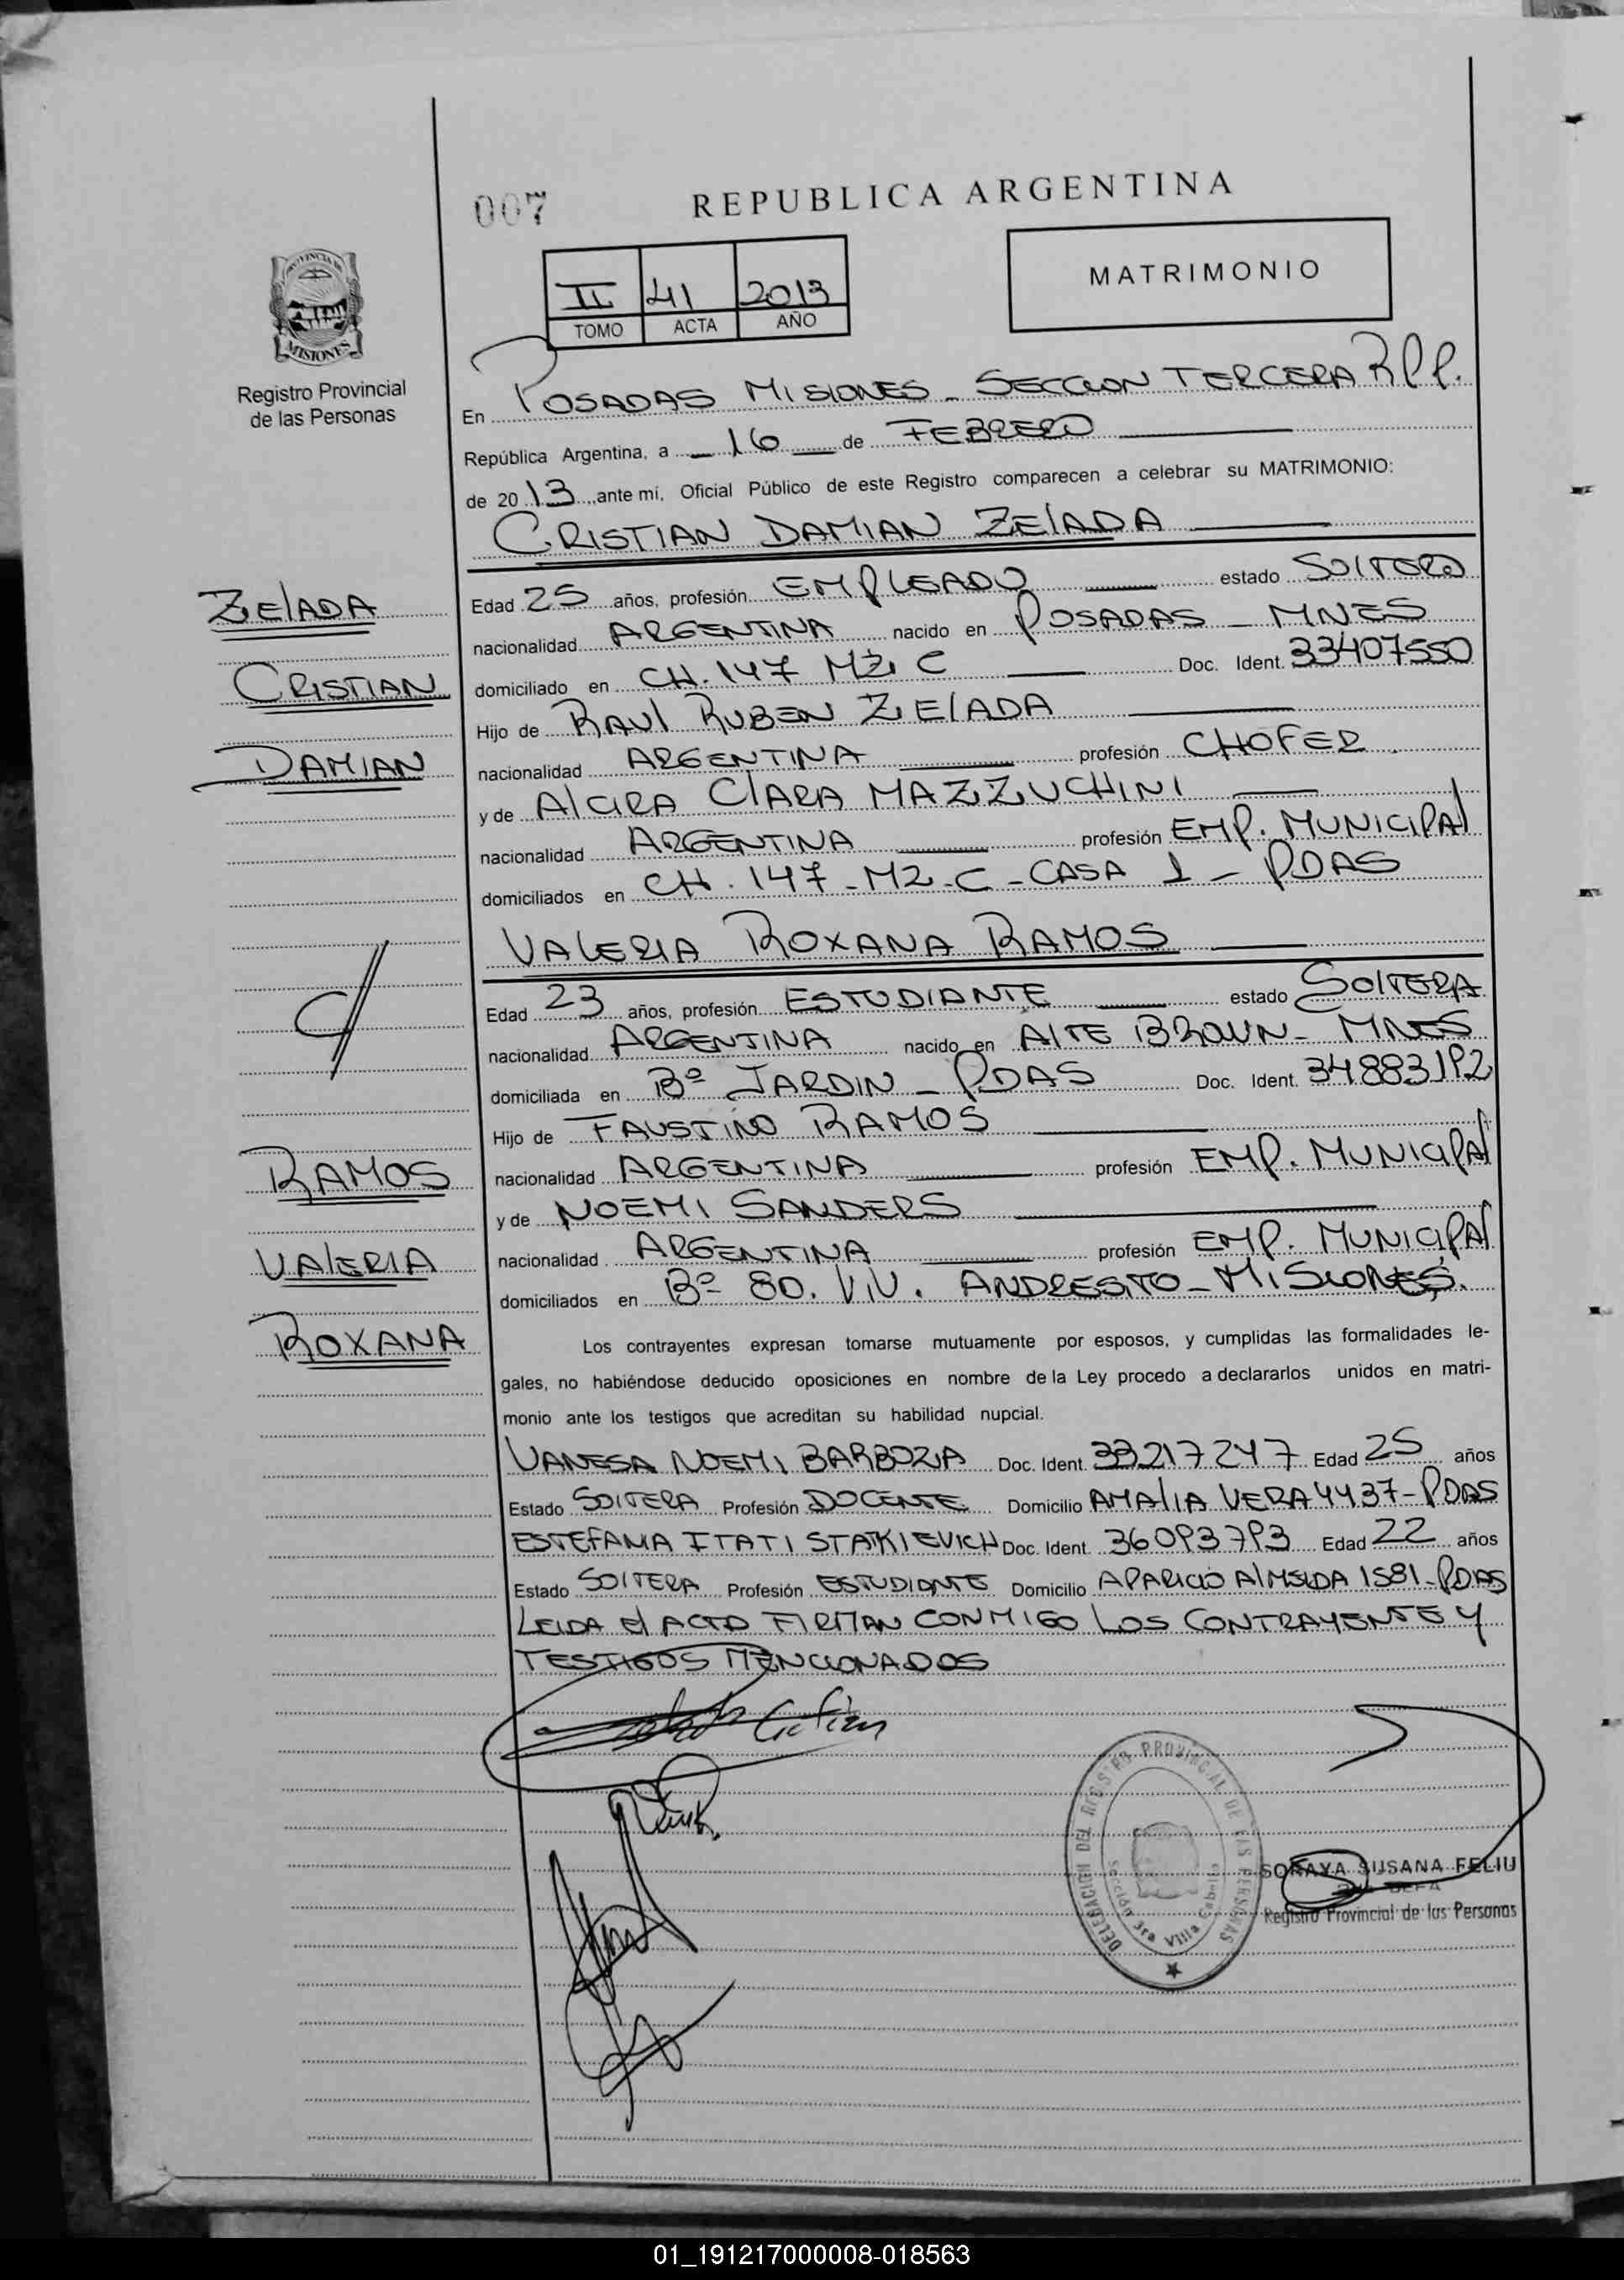 007
REPUBLICA ARGENTINA
II 41 2013
TOMO ACTA AÑO
MATRIMONIO
PROVINCIA DE
MISIONES
Registro Provincial
de las Personas
En POSADAS MISIONES - SECCION TERCERA R.P.P.
República Argentina, a 16 de FEBRERO
de 2013, ante mí, Oficial Público de este Registro comparecen a celebrar su MATRIMONIO:
CRISTIAN DAMIAN ZElADA
ZElADA
CRISTIAN
DAMIAN
Edad 25 años, profesión EMPLEADO estado SOlTERO
nacionalidad ARGENTINA nacido en POSADAS - MNES
domiciliado en CH. 147 MZ C Doc. Ident. 33407550
Hijo de RAUl RUBEN ZElADA
nacionalidad ARGENTINA profesión CHOFER
y de AlCIRA ClARA MAZZUCHINI
nacionalidad ARGENTINA profesión EMP. MUNICIPAl
domiciliados en CH. 147 - MZ - C - CASA 1 - PDAS
VALERIA ROXANA RAMOS
Edad 23 años, profesión ESTUDIANTE estado SOlTERA
nacionalidad ARGENTINA nacido en AlTE BROWN - MNES
domiciliada en Bº JARDIN - PDAS Doc. Ident. 34883192
Hijo de FAUSTINO RAMOS
nacionalidad ARGENTINA profesión EMP. MUNICIPAl
y de NOEMI SANDERS
nacionalidad ARGENTINA profesión EMP. MUNICIPAl
domiciliados en Bº 80. VIV. ANDRESITO - MISIONES.
RAMOS
VAlERIA
ROXANA
Los contrayentes expresan tomarse mutuamente por esposos, y cumplidas las formalidades le-
gales, no habiéndose deducido oposiciones en nombre de la Ley procedo a declararlos unidos en matri-
monio ante los testigos que acreditan su habilidad nupcial.
VANESA NOEMI BARBOZA Doc. Ident. 33217247 Edad 25 años
Estado SOlTERA Profesión DOCENTE Domicilio AMAlIA VERA 4437 - PDAS
ESTEFANIA ITATI STATKIEVICH Doc. Ident. 36093793 Edad 22 años
Estado SOlTERA Profesión ESTUDIANTE Domicilio APARICIO AlMEIDA 1581 - PDAS
LEIDA El ACTA FIRMAN CONMIGO LOS CONTRAYENTES Y
TESTIGOS MENCIONADOS
DELEGACION DEL REGISTRO PROVINCIAL DE LAS PERSONAS
Sección 3ra Villa Cabello
SORAYA SUSANA FELIU
JEFA
Registro Provincial de las Personas
01_191217000008-018563